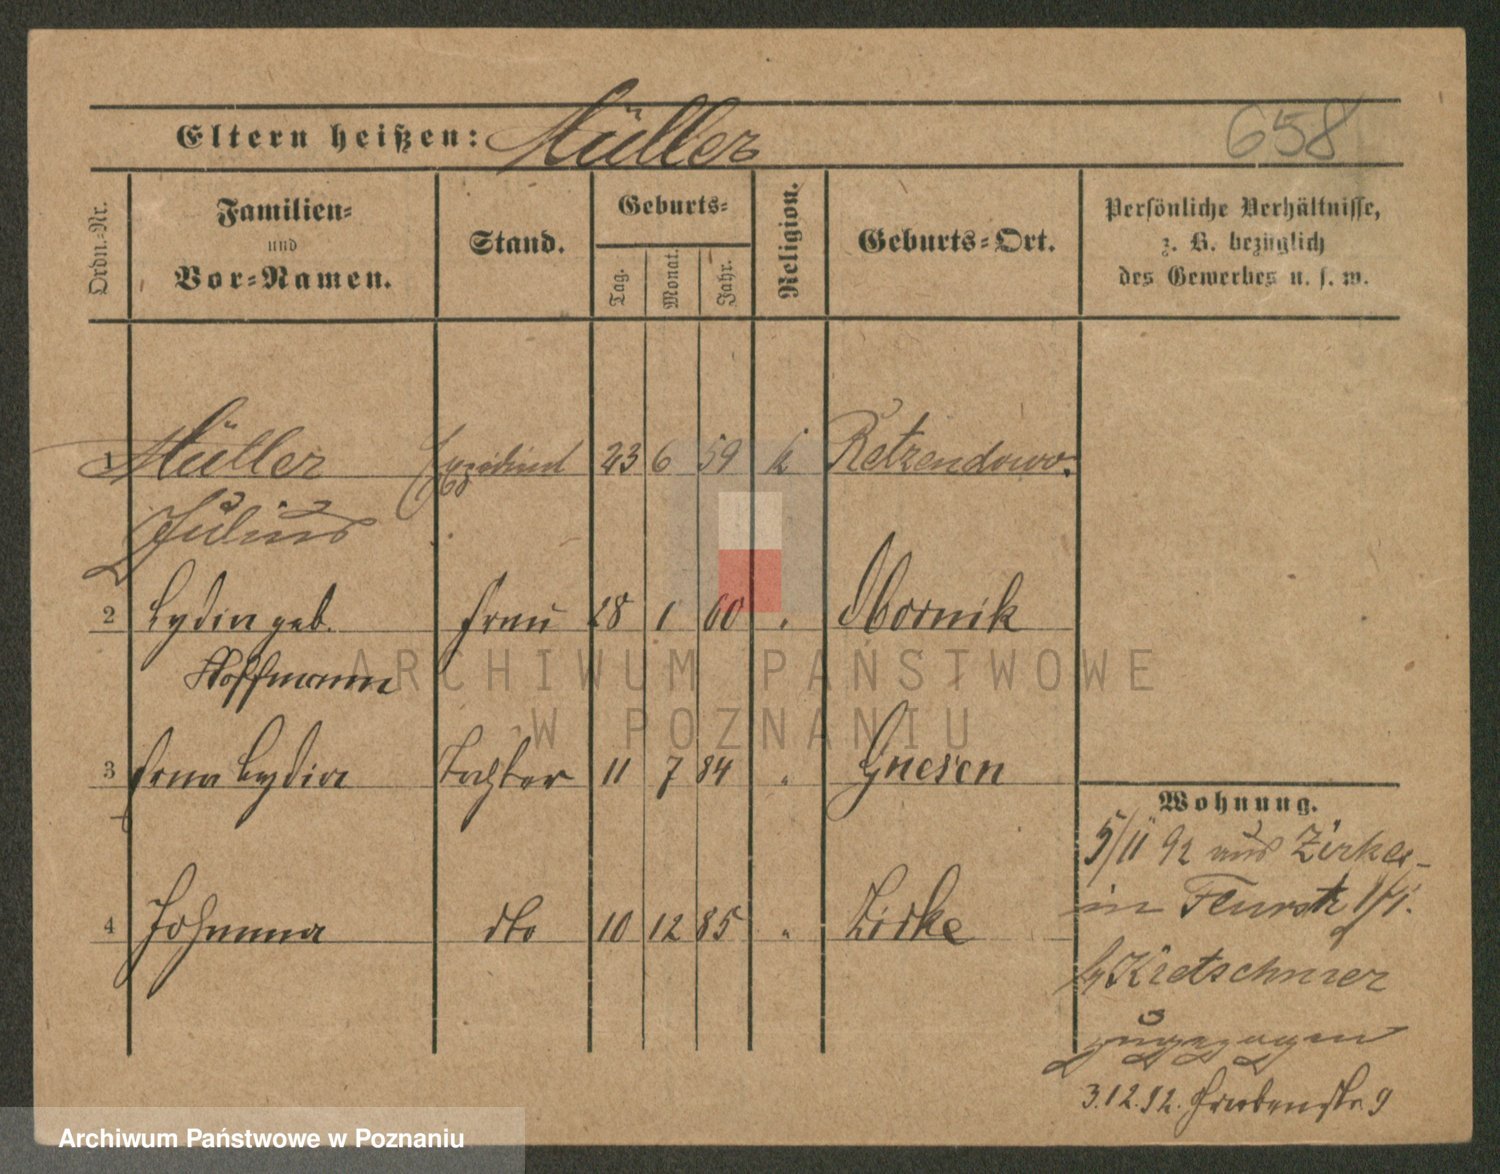 Eltern heißen: Müller
658
Ordn.-Nr.
Familien-
und
Vor-Namen.
Stand.
Geburts-
Tag.
Monat.
Jahr.
Religion.
Geburts-Ort.
Persönliche Verhältnisse,
z. B. bezüglich
des Gewerbes u. s. w.
1 Müller 23 6 59 k Retzendowo.
Julius
2 Lydia geb. Frau 28 1 60 " Obornik
Hoffmann
ARCHIWUM PAŃSTWOWE
W POZNANIU
3 Erna Lydia Tochter 11 7 84 " Gnesen
4 Johanna dto 10 12 85 " Zirke
Wohnung.
5/11 92 aus Zirke
in
Kretschmer
zugezogen
3.12.92. Grabenstr. 9
Archiwum Państwowe w Poznaniu